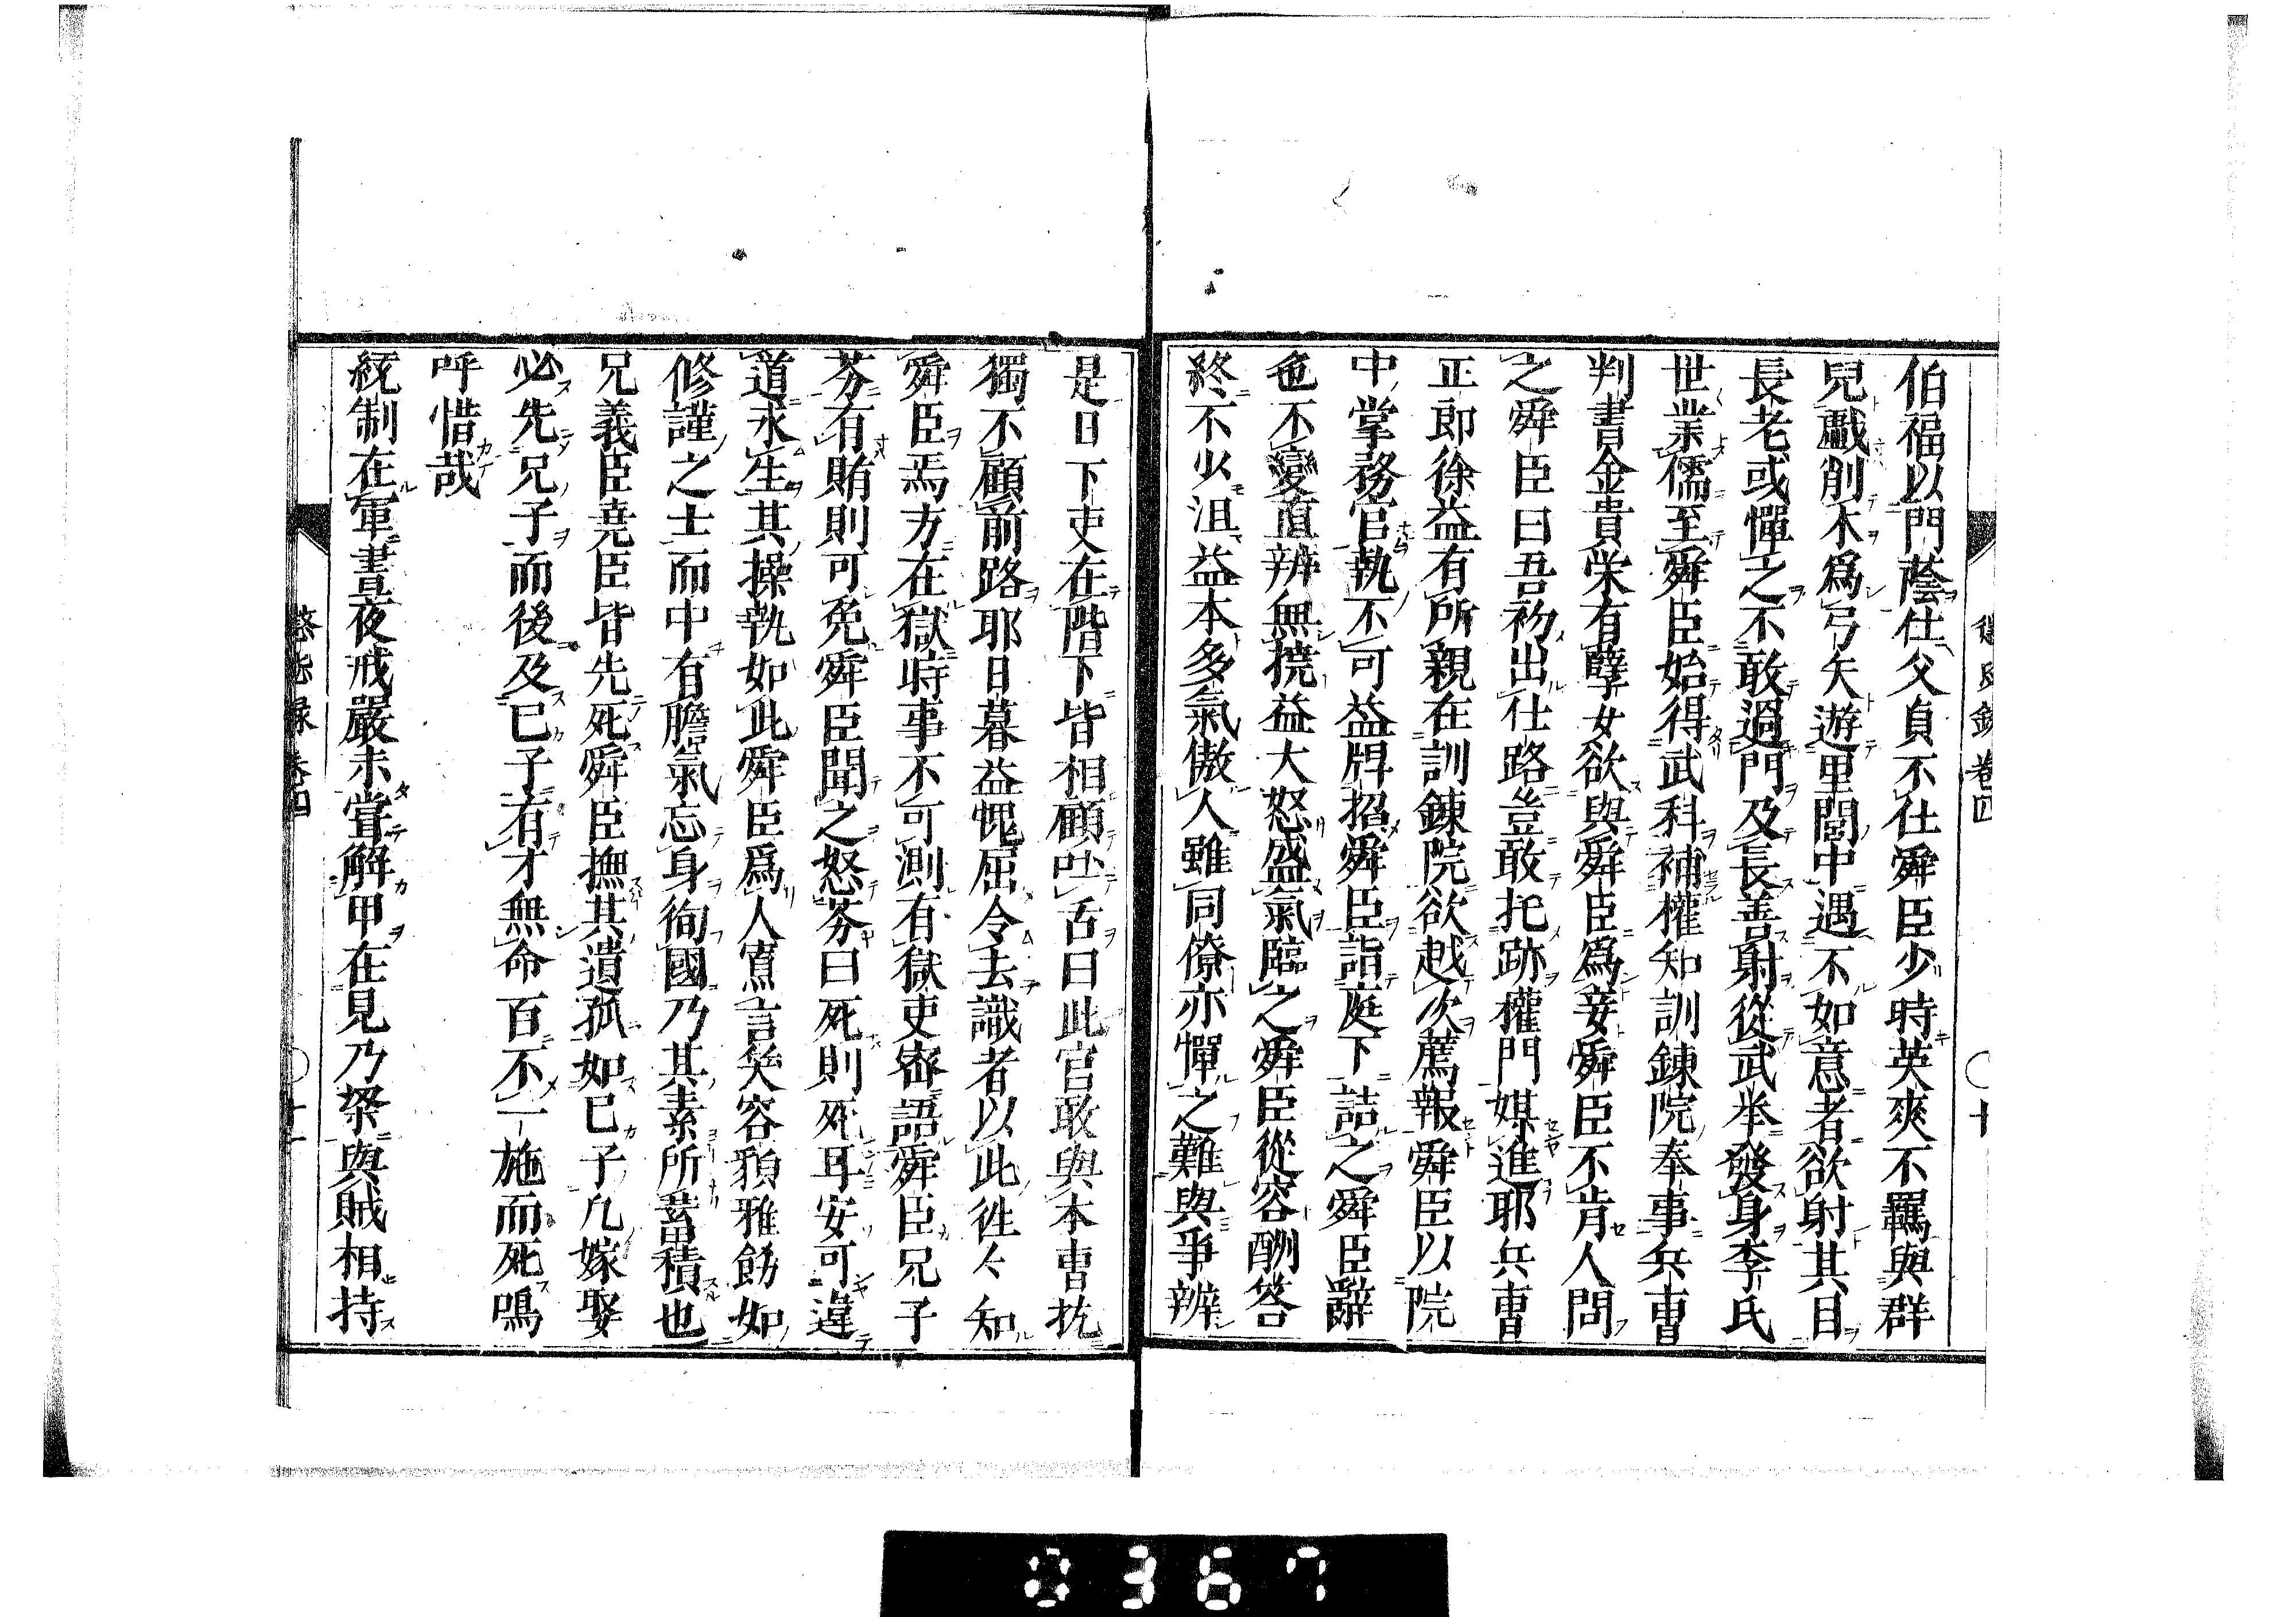 伯福以門蔭仕父貞不仕舜臣少時英爽不羈與群
兒戲削木爲弓矢遊里閭中遇不如意者欲射其目
長老或憚之不敢過門及長善射從武举發身李氏
世業儒至舜臣始得武科補權知訓鍊院奉事兵曹
判書金貴栄有孽女欲與舜臣爲妾舜臣不肯人問
之舜臣曰吾初出仕路豈敢托跡權門媒進耶兵曹
正郎徐益有所親在訓鍊院欲越次薦報舜臣以院
中掌務官執不可益牌招舜臣詣庭下詰之舜臣辭
色不變直辨無撓益大怒盛氣臨之舜臣從容酬答
終不少沮益本多氣傲人雖同僚亦憚之難與爭辨
是日下吏在階下皆相顧吐舌曰此官敢與本曹抗
獨不顧前路耶日暮益愧屈令去識者以此徃々知
舜臣焉方在獄時事不可測有獄吏密語舜臣兄子
芬有賄則可免舜臣聞之怒芬曰死則死耳安可違
道求生其操執如此舜臣爲人寡言笑容貌雅飭如
修謹之士而中有膽氣忘身徇國乃其素所蓄積也
兄羲臣堯臣皆先死舜臣撫其遺孤如已子凡嫁娶
必先兄子而後及已子有才無命百不一施而死嗚
呼惜哉
統制在軍晝夜戒嚴未甞解甲在見乃梁與賊相持
懲毖録 卷四 十
懲毖録 卷四 十一
0367